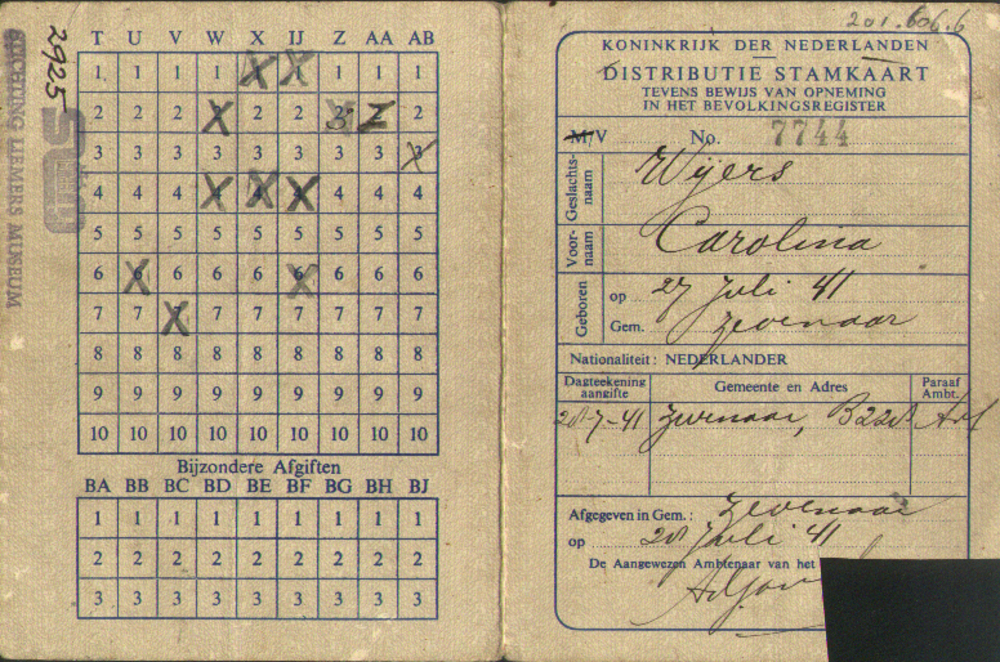 2925
STICHTING LIEMERS MUSEUM
T U V W X IJ Z AA AB
1 1 1 1 X X 1 1 1
2 2 2 X 2 2 2 Z 2
3 3 3 3 3 3 3 3 X
4 4 4 X X X 4 4 4
5 5 5 5 5 5 5 5 5
6 X 6 6 6 X 6 6 6
7 7 X 7 7 7 7 7 7
8 8 8 8 8 8 8 8 8
9 9 9 9 9 9 9 9 9
10 10 10 10 10 10 10 10 10
Bijzondere Afgiften
BA BB BC BD BE BF BG BH BJ
1 1 1 1 1 1 1 1 1
2 2 2 2 2 2 2 2 2
3 3 3 3 3 3 3 3 3
201.606.6
KONINKRIJK DER NEDERLANDEN
DISTRIBUTIE STAMKAART
TEVENS BEWIJS VAN OPNEMING
IN HET BEVOLKINGSREGISTER
M/V No. 7744
Geslachts-
naam
Wijers
Voor-
naam
Carolina
Geboren
op 27 Juli 41
Gem. Zevenaar
Nationaliteit: NEDERLANDER
Dagteekening aangifte
Gemeente en Adres
Paraaf Ambt.
28-7-41 Zevenaar,
Afgegeven in Gem.: Zevenaar
op 28 Juli 41
De Aangewezen Ambtenaar van het